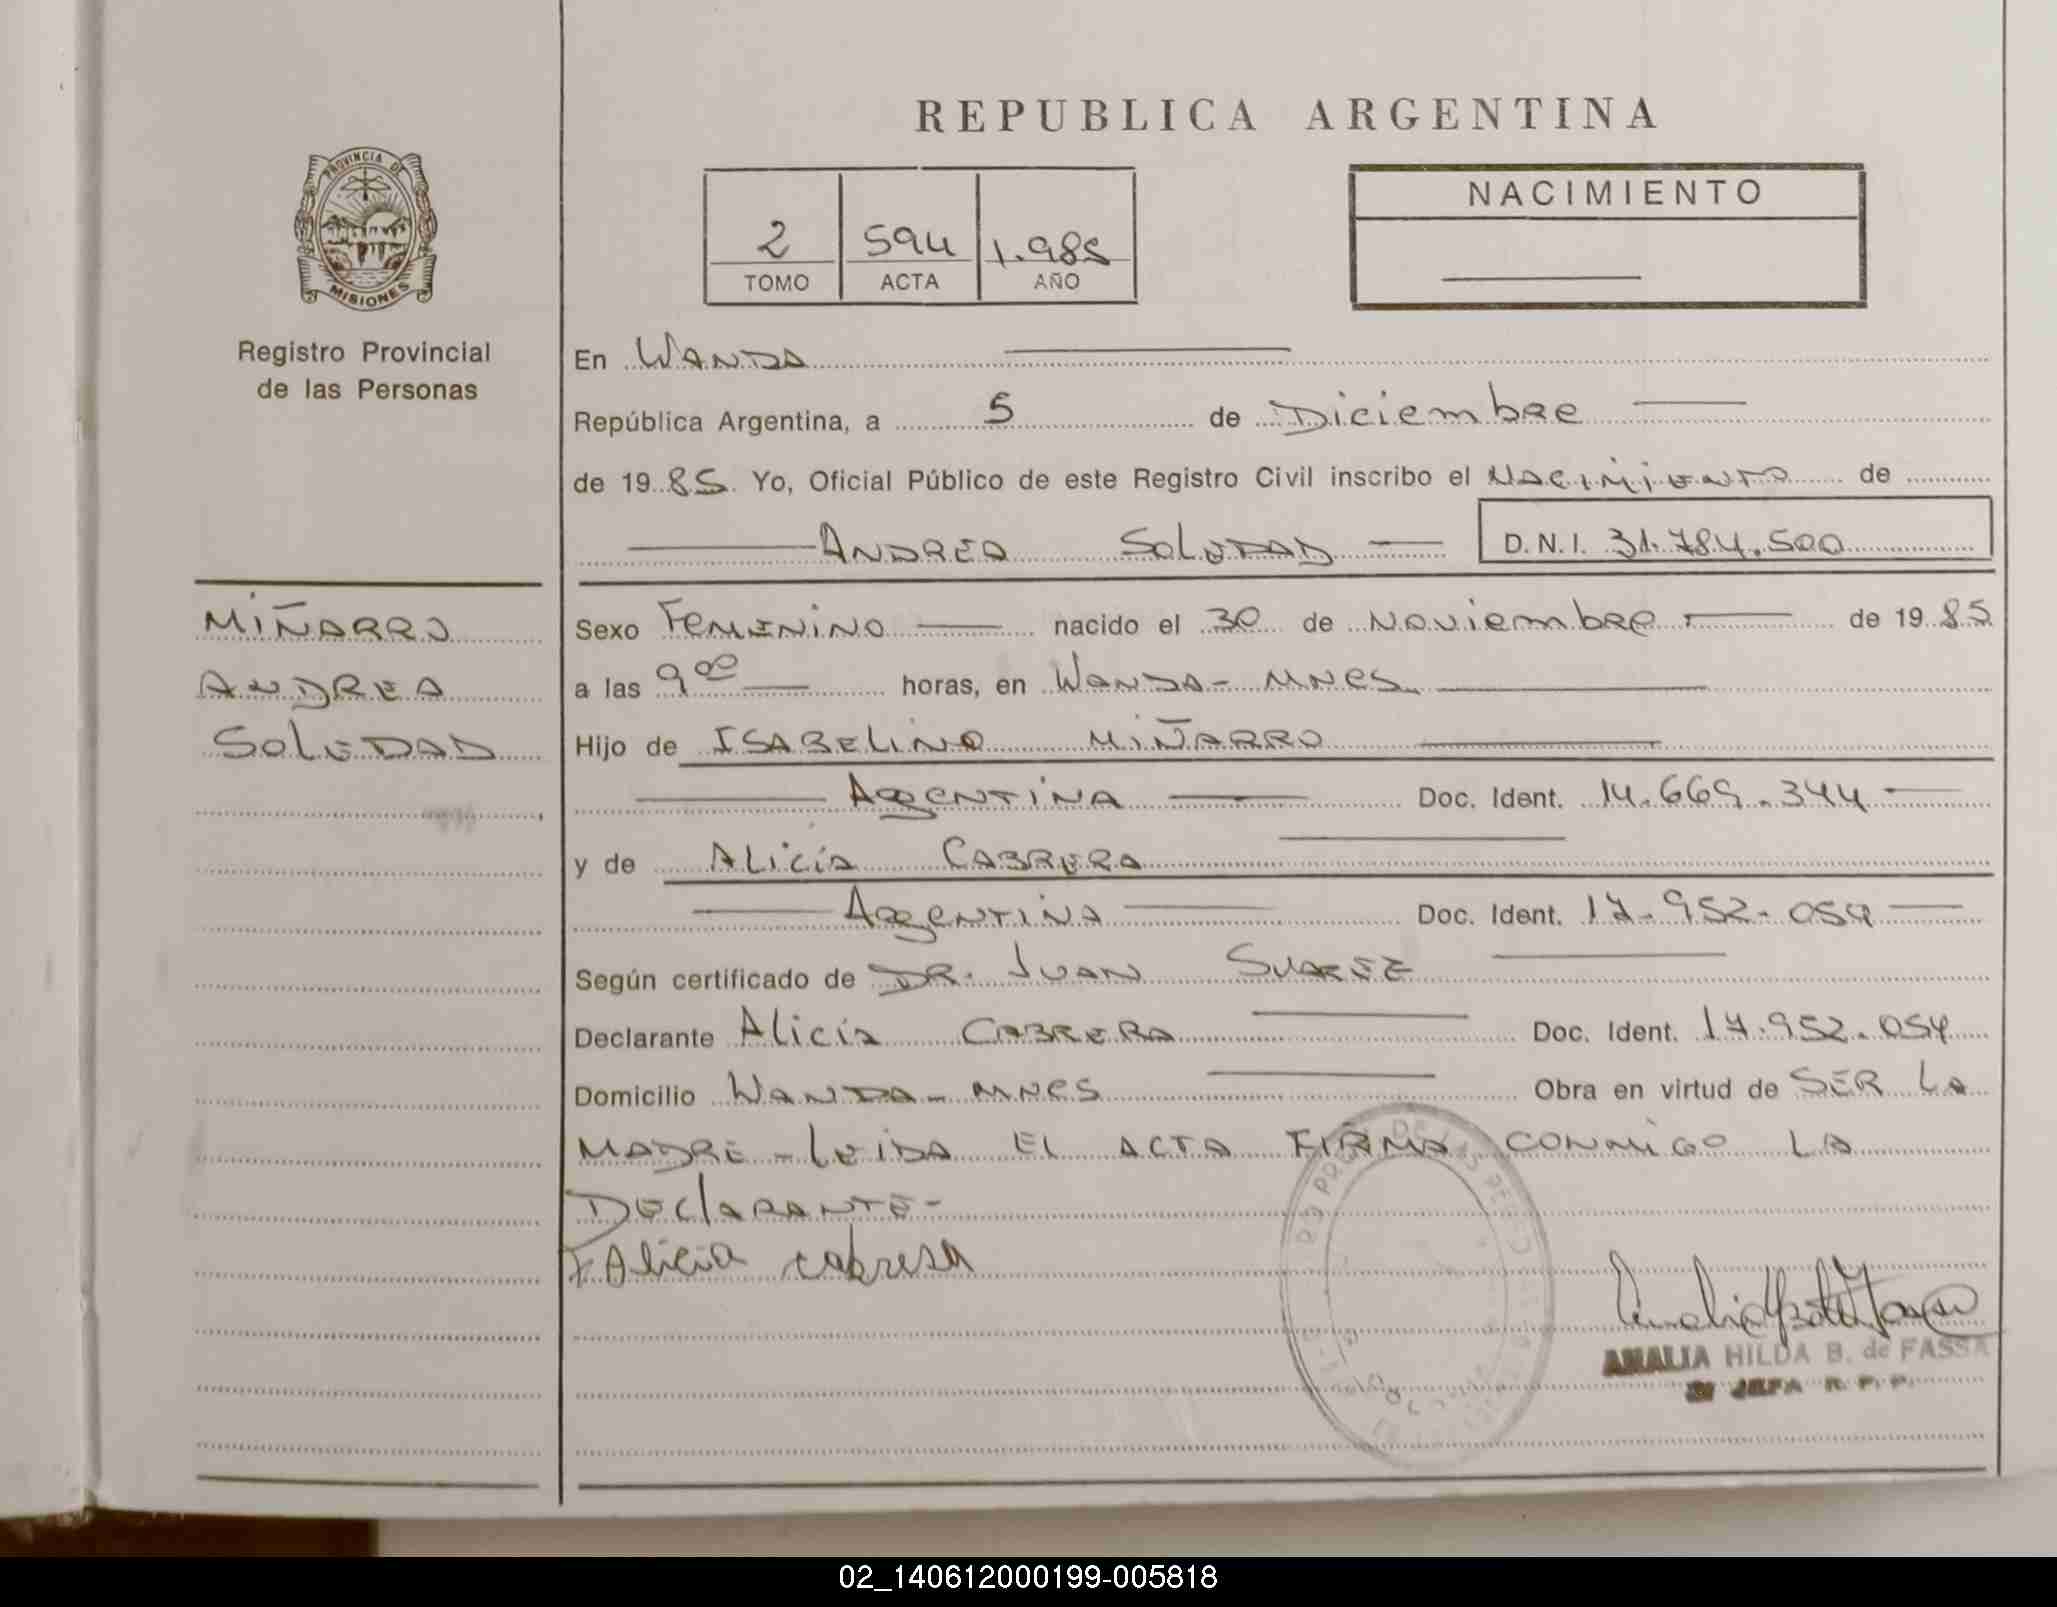 REPUBLICA ARGENTINA
PROVINCIA DE
MISIONES
Registro Provincial
de las Personas
2 594 1.985
TOMO ACTA AÑO
NACIMIENTO
En WANDA
República Argentina, a 5 de Diciembre
de 1985 Yo, Oficial Público de este Registro Civil inscribo el NACIMIENTO de
ANDREA SOLEDAD D.N.I. 31.784.500
MIÑARRO
ANDREA
SOLEDAD
Sexo FEMENINO nacido el 30 de NOViembre de 1985
a las 9 00 horas, en WANDA - MNES
Hijo de ISABELINO MIÑARRO
ARGENTINA Doc. Ident. 14.669.344
y de ALICIA CABRERA
ARGENTINA Doc. Ident. 17.952.054
Según certificado de DR. JUAN SUAREZ
Declarante Alicia CABRERA Doc. Ident. 17.952.054
Domicilio WANDA - MNES Obra en virtud de SER LA
MADRE - LEIDA EL ACTA FIRMA CONMIGO LA
DECLARANTE -
Alicia cabrera
AMALIA HILDA B. de FASSA
JEFA R. P. P.
02_140612000199-005818